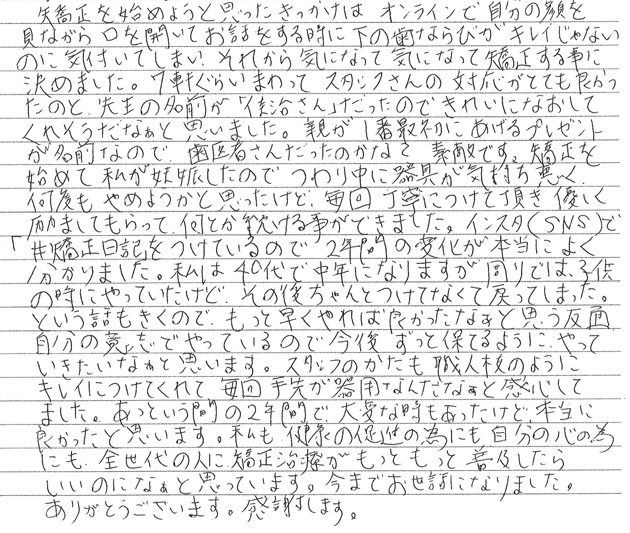 矯正を始めようと思ったきっかけは オンラインで自分の顔を
見ながら 口を開いてお話をする時に 下の歯ならびが キレイじゃない
のに気付いてしまい それから気になって 気になって 矯正する事に
決めました。7軒ぐらいまわって スタッフさんの対応がとても良かっ
たのと 先生の名前が「俊治さん」だったので きれいになおして
くれそうだなぁと 思いました。親が1番最初にあげるプレゼント
が名前なので、歯医者さんだったのかな? 素敵です。矯正を
始めて 私が妊娠したので つわり中に 器具が気持ち悪く、
何度も やめようかと思ったけど、毎回 丁寧につけて頂き 優しく
励ましてもらって 何とか続ける事ができました。インスタ(SNS)で
「#矯正日記」をつけているので 2年間の変化が本当によく
分かりました。私は 40代で中年になりますが 回りでは、子供
の時にやっていたけど、その後ちゃんとつけてなくて戻ってしまった。
という話もきくので、もっと早くやれば良かったなぁと思う反面
自分の意志でやっているので 今後 ずっと保てるように やって
いきたいなぁと 思います。スタッフのかたも 職人技のように
キレイにつけてくれて 毎回 手先が器用なんだなぁと感じして
ました。あっという間の2年間で、大変な時もあったけど、本当に
良かったと思います。私も、健康の促進の為にも 自分の心の為
にも、全世代の人に、矯正治療が もっともっと 普及したら
いいのになぁと 思っています。今までお世話になりました。
ありがとうございます。感謝します。